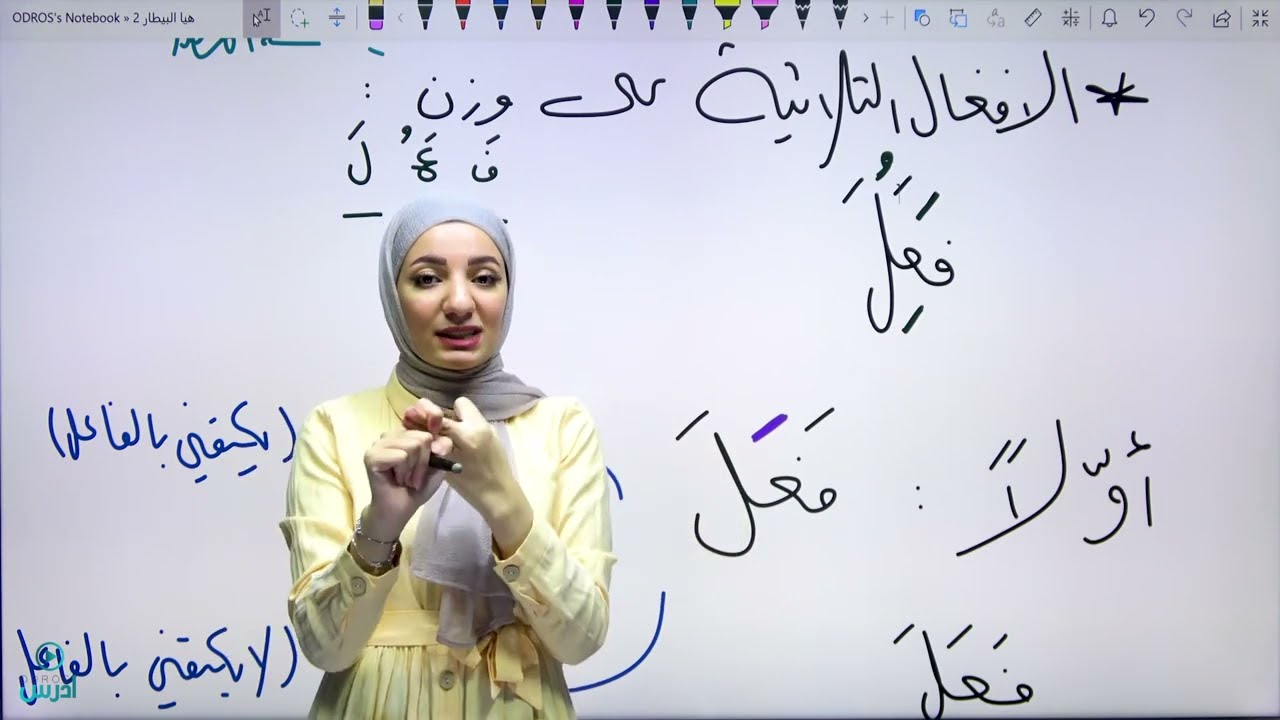 ODROS's Notebook » هيا البيطار 2
* الافعال الثلاثية على وزن :
فَ عَُ لَ
فَعَُِلَ
أوّلاً : فَعَلَ
(يكتفي بالفاعل)
(لا يكتفي بالفاعل
فَعَلَ
ODROS
أدرس